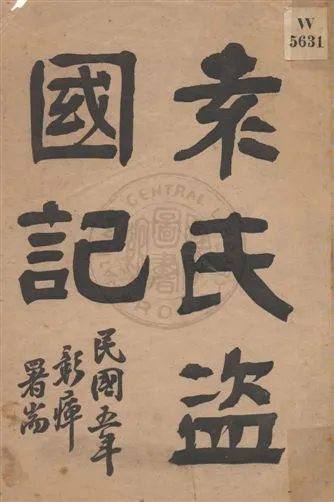 袁氏盜
國記
民國五年
彰癉
署耑
W
5631
CENTRAL
圖書